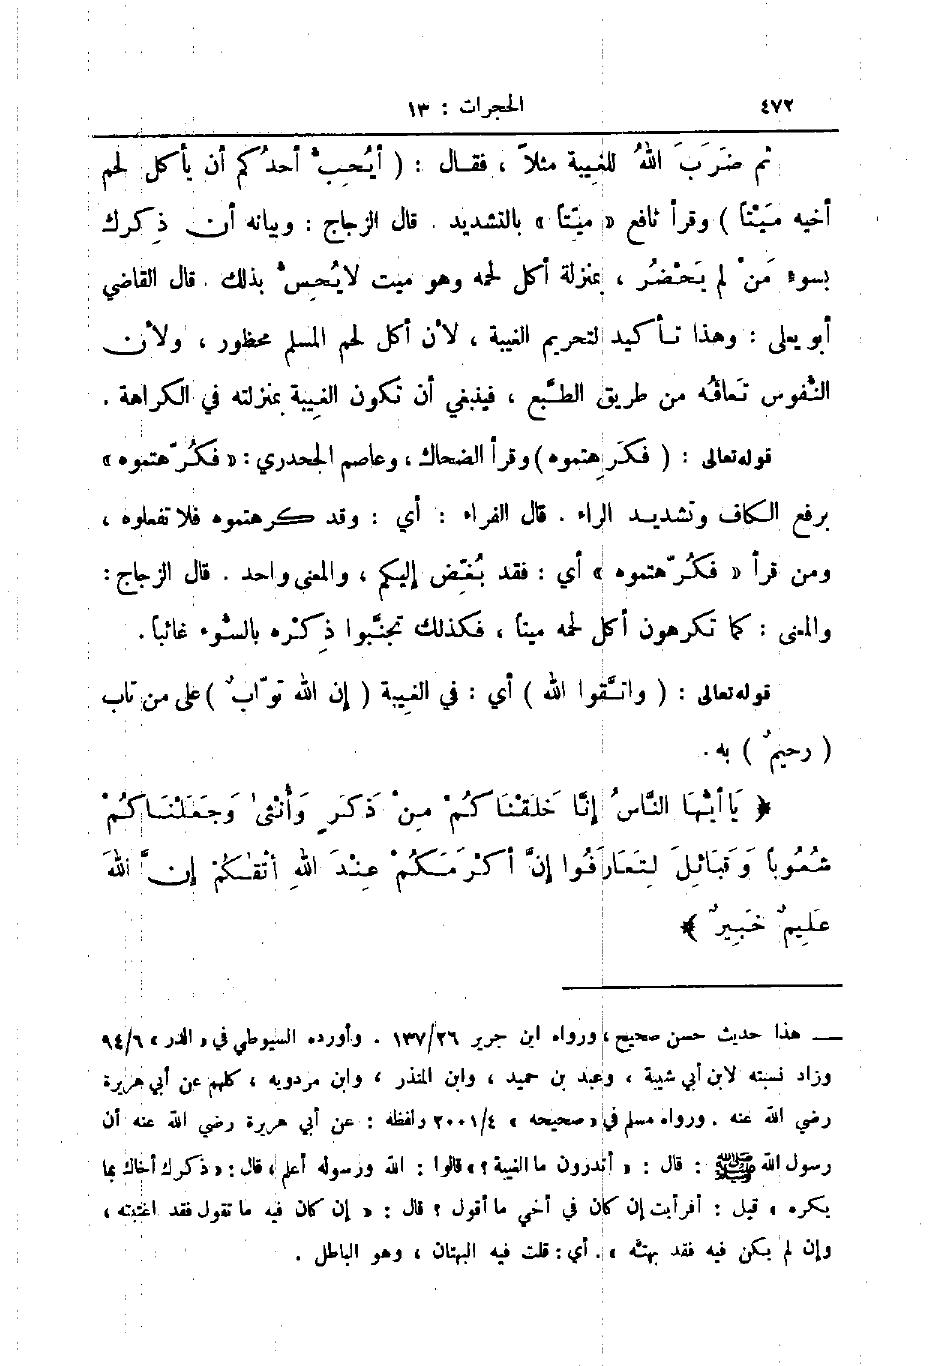 ٤٧٢ الحجرات : ١٣
ثم ضَرَبَ اللهُ للغيبة مثلاً ، فقال : ( أيُحِبُّ أحدُكم أن يأكل لحم
أخيه مَيْتاً ) وقرأ نافع « ميّتاً » بالتشديد . قال الزجاج : وبيانه أن ذِكرك
بسوء مَنْ لم يَحْضُر ، بمنزلة أكل لحمه وهو ميت لا يُحِسُّ بذلك . قال القاضي
أبو يعلى : وهذا تأكيد لتحريم الغيبة ، لأن أكل لحم المسلم محظور ، ولأن
النُّفوس تَعافُه من طريق الطَّبع ، فينبغي أن تكون الغيبة بمنزلته في الكراهة .
قوله تعالى : ( فكَرِهتموه ) وقرأ الضحاك ، وعاصم الجحدري : « فكُرِّهتموه »
برفع الكاف وتشديد الراء . قال الفراء : أي : وقد كرهتموه فلا تفعلوه ،
ومن قرأ « فكُرِّهتموه » أي : فقد بُغِّض إليكم ، والمعنى واحد . قال الزجاج :
والمعنى : كما تكرهون أكل لحمه ميتاً ، فكذلك تجنَّبوا ذِكْره بالسُّوء غائباً .
قوله تعالى : ( واتَّقوا الله ) أي : في الغيبة ( إن الله توّابٌ ) على من تاب
( رحيمٌ ) به .
﴿ يَا أَيُّهَا النَّاسُ إِنَّا خَلَقْنَاكُمْ مِنْ ذَكَرٍ وَأُنْثىٰ وَجَعَلْنَاكُمْ
شُعُوباً وَقَبَائِلَ لِتَعَارَفُوا إِنَّ أَكْرَمَكُمْ عِنْدَ اللهِ أَتْقٰكُمْ إِنَّ اللهَ
عَلِيمٌ خَبِيرٌ ﴾
— هذا حديث حسن صحيح ، ورواه ابن جرير ١٣٧/٢٦ . وأورده السيوطي في « الدر » ٩٤/٦
وزاد نسبته لابن أبي شيبة ، وعبد بن حميد ، وابن المنذر ، وابن مردويه ، كلهم عن أبي هريرة
رضي الله عنه . ورواه مسلم في « صحيحه » ٢٠٠١/٤ ولفظه : عن أبي هريرة رضي الله عنه أن
رسول الله ﷺ : قال : « أتدرون ما الغيبة ؟ » قالوا : الله ورسوله أعلم ، قال : « ذكرك أخاك بما
يكره » قيل : أفرأيت إن كان في أخي ما أقول ؟ قال : « إن كان فيه ما تقول فقد اغتبته ،
وإن لم يكن فيه فقد بهتَّه » . أي : قلت فيه البهتان ، وهو الباطل .